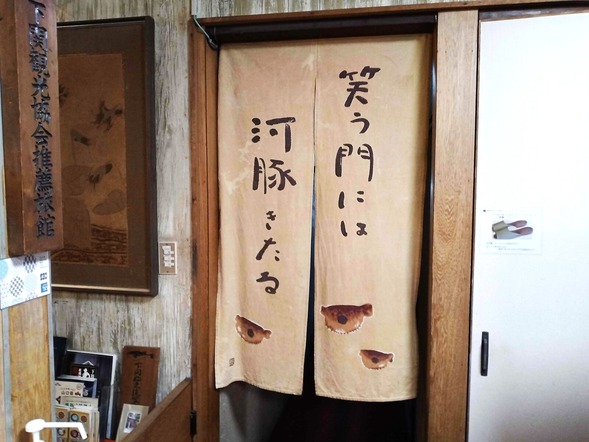 下関観光協会推薦旅館
笑う門には
河豚きたる